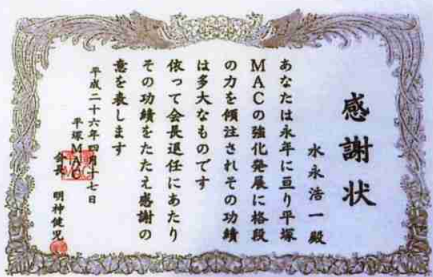 感謝状
水永浩一殿
あなたは永年に亘り平塚
MACの強化発展に格段
の力を傾注されその功績
は多大なものです
依って会長退任にあたり
その功績をたたえ感謝の
意を表します
平成二十六年四月十七日
平塚MAC
会長 明神健児